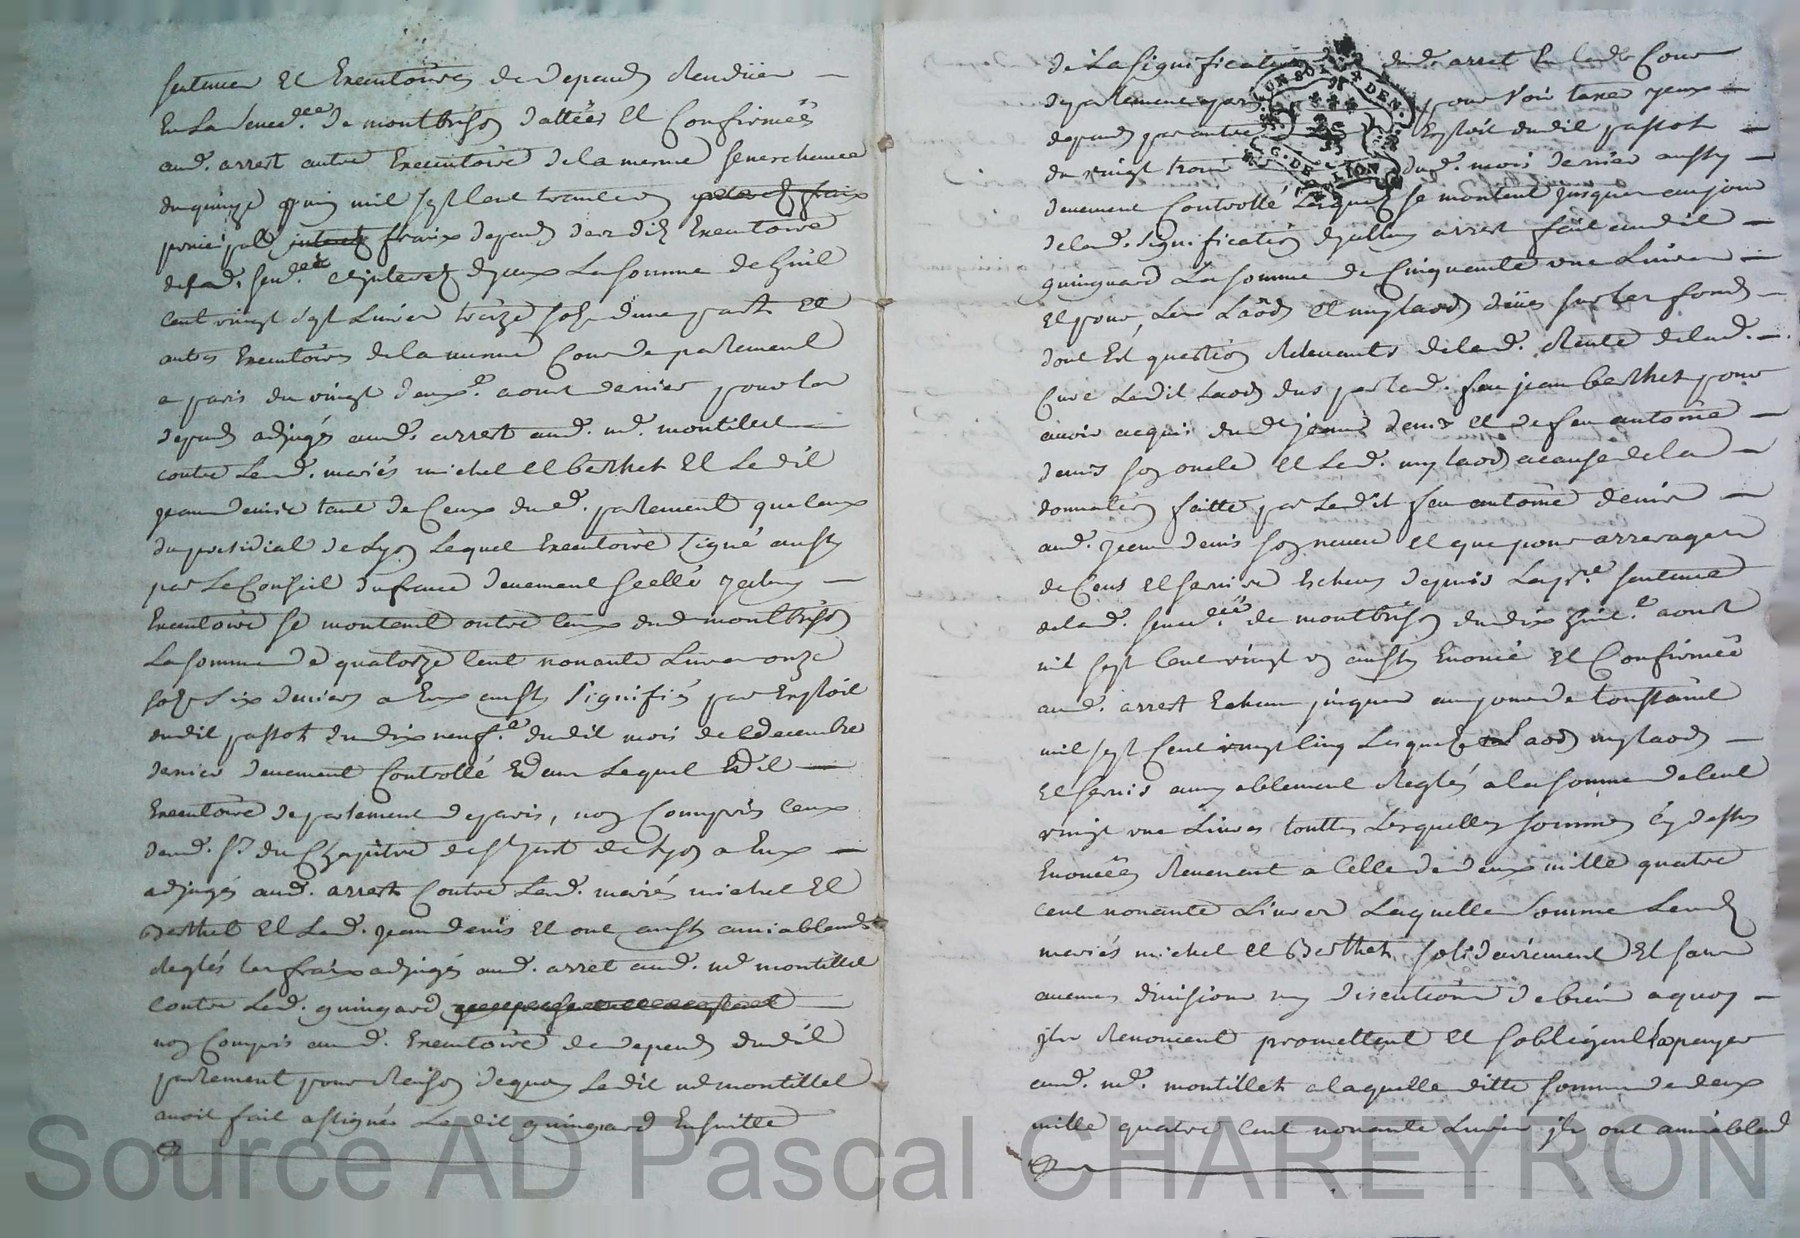 sentence et Executoires de depend Rendües
En la Senec.ee de montbrison dattées et Confirmées
aud. arrest autre Executoire de la mesme seneschaucée
du quinze juin mil sept cent trente
principal, interests fraix depend desdits Executoire
de lad. Sen.ee et interests d'yceux La somme de huit
cent vingt sept Livres treize sols d'une part et
autre Executoire de la mesme Cour de parlement
a paris du vingt deux.e aoust dernier pour les
depend adjugés aud. arrest aud. Md. montillet
contre Lesd. mariés michel et berthet et Ledit
jean denis tant de Ceux dud. parlement que Ceux
du presidial de Lyon Lequel Executoire signé aussy
par Le Conseil dufranc deuement scellé yceluy
Executoire se montent outre ceux dud montbrison
La somme de quatorze cent nonante Livres onze
sols six deniers a Eux aussy signifié par Exploit
dudit passot du dix neuf.e dudit mois de decembre
dernier deuement Controllé dans Lequel dit
Executoire de parlement de paris, non Compris ceux
dud. Sr. du Chapitre de St just de Lyon a Eux
adjugés aud. arrest Contre Lesd. mariés michel Et
Berthet Et Led. jean denis et ont aussy amiablemt
Reglés les fraix adjugés aud. arret aud. Md montillet
contre Led. guingard
non Compris aud. Executoire de depend dudit
parlement pour Raison de quoy Ledit Md montillet
avoit fait assigner Ledit guingard Ensuitte
de La signification dud. arret En lad. Cour
de parlement a paris pour voir taxer yceux
depend par autre Exploit dudit passot
du vingt trois dud. mois dernier aussy
deuement Controllé Lesquels se montent jusques au jour
de lad. signification d'yceluy arrest fait audit
guinguard La somme de Cinquante une Livres
Et pour Les Laods et mylaods deües sur les fonds
dont Est question Relevants de lad. Rente de lad.
Cure Ledit Laods dus par led. feu jean berthet pour
avoir acquis dud. jean denis et de feu antoine
denis son oncle et Led. mylaod a cause de la
donnation faitte par Ledit feu antoine denis
aud. jean denis son neveu et que pour arrerages
de Cens et servis Echeus depuis La pre. sentence
de lad. Senec.ée de montbrison du dix huit.e aoust
mil sept Cent vingt un aussy Enoncé Et Confirmée
aud. arrest Echeus jusques au jour de toussaint
mil sept Cent vingt cinq Lesquels Laods mylaods
et servis aimablement Reglés a la somme de Cent
vingt une Livres touttes Lesquelles sommes cy dessus
Enoncées Revenent a Celle de deux mille quatre
cent nonante Livres Laquelle somme Lesd
mariés michel et Berthet, solidairement Et sans
aucunes division ny discution de biens a quoy
jls Renoncent promettent et s'obligent a payer
aud. Md. montillet a laquelle ditte somme de deux
mille quatre cent nonante Livres jls ont amiablemt
Source AD Pascal CHAREYRON